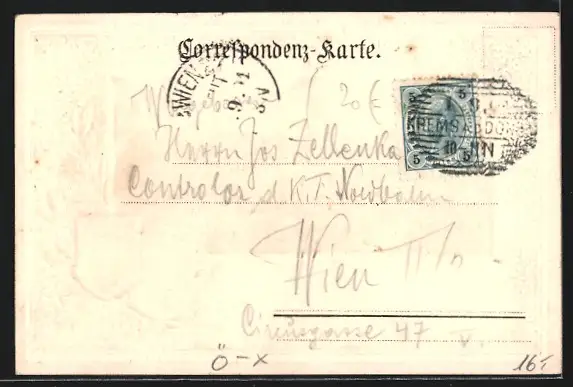 Correspondenz-Karte.
WIEN
9. 11
5
KREMS A.D.DONAU
10
5 5
20 €
Herrn Jos Zellenka
Controlor d K.F. Nordbahn
Wien II/
Circusgasse 47
Ö-x
16,-